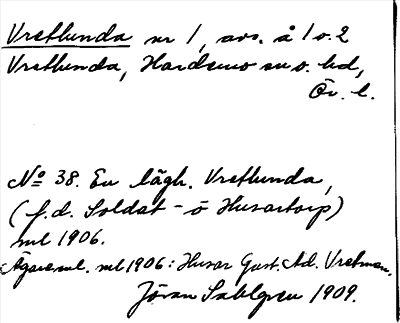 Vretlunda nr 1, avs. å 1 o. 2
Vretlunda, Hardemo sn o. hd,
Ör. l.
No 38. En lägh. Vretlunda,
(f.d. Soldat - o Husartorp)
ml 1906.
Ägareml. ml 1906: Husar Gust. Ad. Vretman.
Jöran Sahlgren 1909.